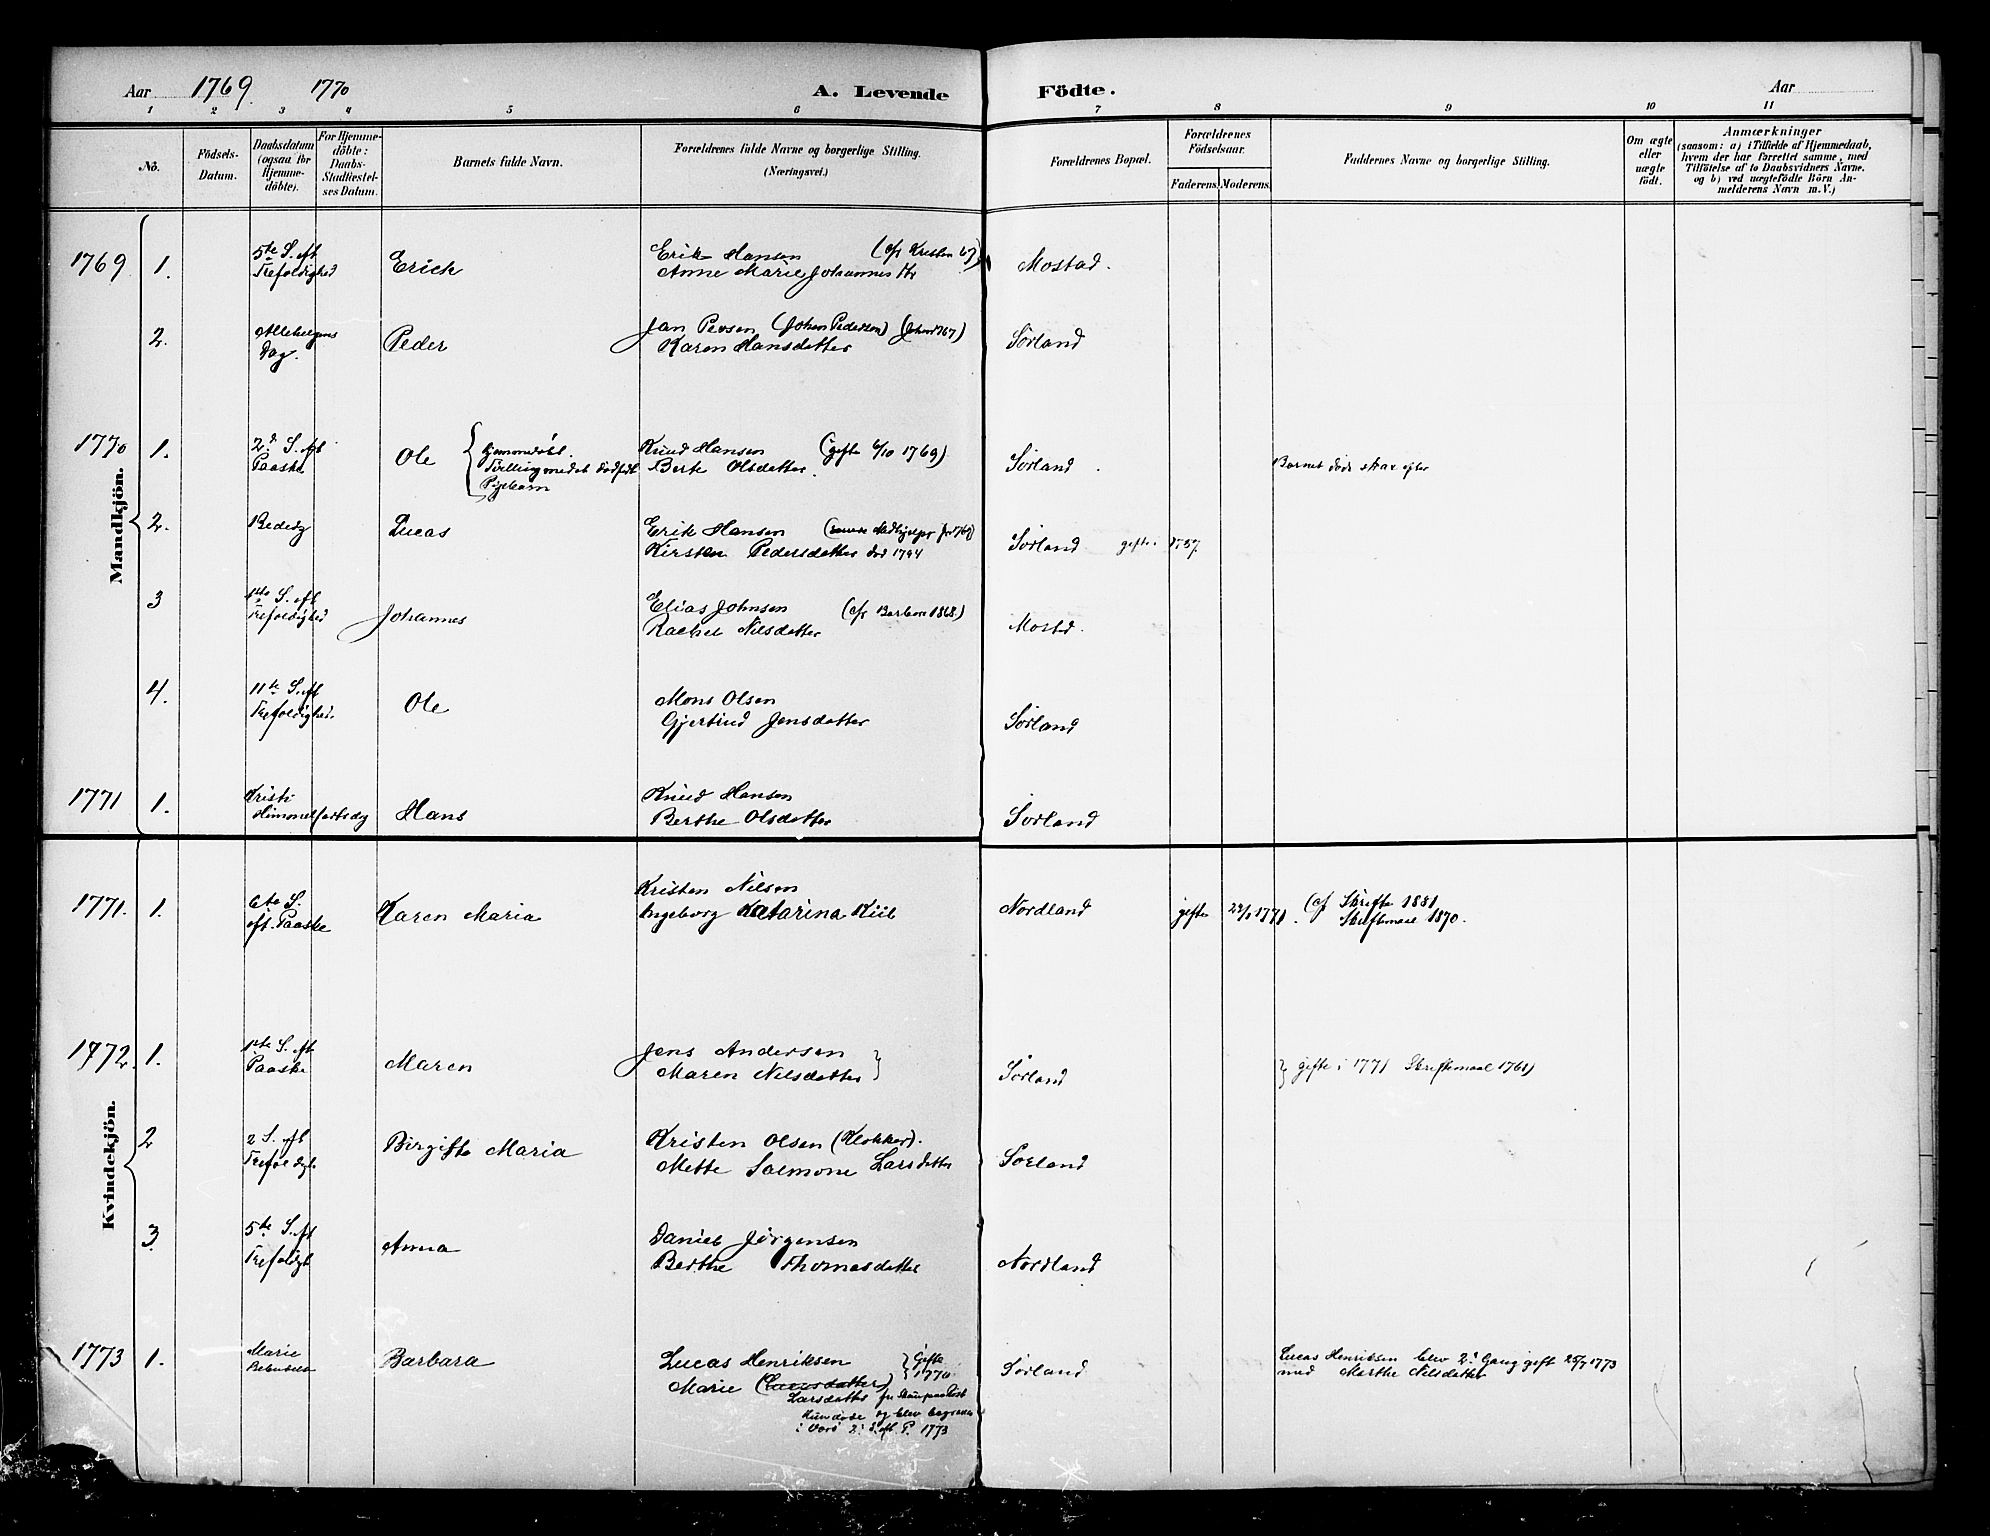 Aar 1769. 1770
A. Levende
Födte.
Aar
1 2 3 4 5 6 7 8 9 10 11
No.
Födsels-
Datum.
Daabsdatum
(ogsaa for
Hjemme-
döbte).
For Hjemme-
döbte:
Daabs-
Stadfæstel-
ses Datum.
Barnets fulde Navn.
Forældrenes fulde Navne og borgerlige Stilling.
(Næringsvei.)
Forældrenes Bopæl.
Forældrenes
Födselsaar.
Faderens. Moderens.
Faddernes Navne og borgerlige Stilling.
Om ægte
eller
uægte
födt.
Anmærkninger
(saasom: a) i Tilfælde af Hjemmedaab,
hvem der har forrettet samme, med
Tilföielse af to Daabsvidners Navne.
og b) ved uægtefödte Börn An-
melderens Navn m. V.)
Mandkjön.
1769 1. 5te S. eft Trefoldighed Erich Erik Hansen (cfr Kristen 67) Mostad.
Anne Marie Johannes Dtr
2. Allehelgens Dag. Peder Jan Persen (Johan Pedersen) Sørland
Karen Hansdatter
1770 1. 2d S. eft Paaske Ole hjemmedøbt Tvilling med et dødfødt Pigebarn Knud Hansen (gifte 6/10 1769) Sørland. Barnet døde strax efter
Berte Olsdatter.
2. Bededg Lucas Erik Hansen Sørland gifte i 1757.
Kirsten Pedersdatter død 1794
3 14de S. eft Trefoldighed Johannes Elias Johnsen (cfr Barbara 1868) Mostd.
Rachel Nilsdatter
4. 11te S. eft Trefoldighed. Ole Mons Olsen Sørland
Gjertrud Jensdatter
1771 1. Kristi Himmelfartsdg Hans Knud Hansen Sørland
Berthe Olsdatter
Kvindekjön.
1771. 1. 6te S. eft. Paaske Karen Maria Kristen Nilsen Nordland gifte 1771. (cf Skrifte 1881
Ingeborg Katarina Kiil Skriftemaal 1870.
1772. 1. 1ste S. eft Paaske Maren Jens Andersen Sørland gifte i 1771 Skriftemaal 1761)
Maren Nilsdatter
2 2 S. eft Trefoldgh Birgitte Maria Kristen Olsen (Klokker). Sørland
Mette Salmone Larsdatter
3. 5te S. eft Trefoldgh Anna Daniel Jørgensen Nordland
Berthe Thomasdatter
1773 1. Marie Bebudelse Barbara Lucas Henriksen Gifte 1770. Sørland Lucas Henriksen blev 2: Gang gift 25/7 1773
Marie Larsdatter med Marthe Nilsdatter
Hun døde og blev begravet
i Værø 2: S. eft P. 1773